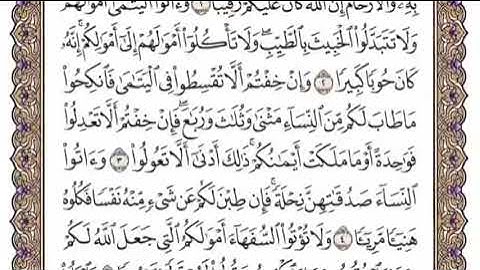 بِهِۦ وَٱلۡأَرۡحَامَۚ إِنَّ ٱللَّهَ كَانَ عَلَيۡكُمۡ رَقِيبٗا ١ وَءَاتُواْ ٱلۡيَتَٰمَىٰٓ أَمۡوَٰلَهُمۡۖ
وَلَا تَتَبَدَّلُواْ ٱلۡخَبِيثَ بِٱلطَّيِّبِۖ وَلَا تَأۡكُلُوٓاْ أَمۡوَٰلَهُمۡ إِلَىٰٓ أَمۡوَٰلِكُمۡۚ إِنَّهُۥ
كَانَ حُوبٗا كَبِيرٗا ٢ وَإِنۡ خِفۡتُمۡ أَلَّا تُقۡسِطُواْ فِي ٱلۡيَتَٰمَىٰ فَٱنكِحُواْ
مَا طَابَ لَكُم مِّنَ ٱلنِّسَآءِ مَثۡنَىٰ وَثُلَٰثَ وَرُبَٰعَۖ فَإِنۡ خِفۡتُمۡ أَلَّا تَعۡدِلُواْ
فَوَٰحِدَةً أَوۡ مَا مَلَكَتۡ أَيۡمَٰنُكُمۡۚ ذَٰلِكَ أَدۡنَىٰٓ أَلَّا تَعُولُواْ ٣ وَءَاتُواْ
ٱلنِّسَآءَ صَدُقَٰتِهِنَّ نِحۡلَةٗۚ فَإِن طِبۡنَ لَكُمۡ عَن شَيۡءٖ مِّنۡهُ نَفۡسٗا فَكُلُوهُ
هَنِيٓـٔٗا مَّرِيٓـٔٗا ٤ وَلَا تُؤۡتُواْ ٱلسُّفَهَآءَ أَمۡوَٰلَكُمُ ٱلَّتِي جَعَلَ ٱللَّهُ لَكُمۡ